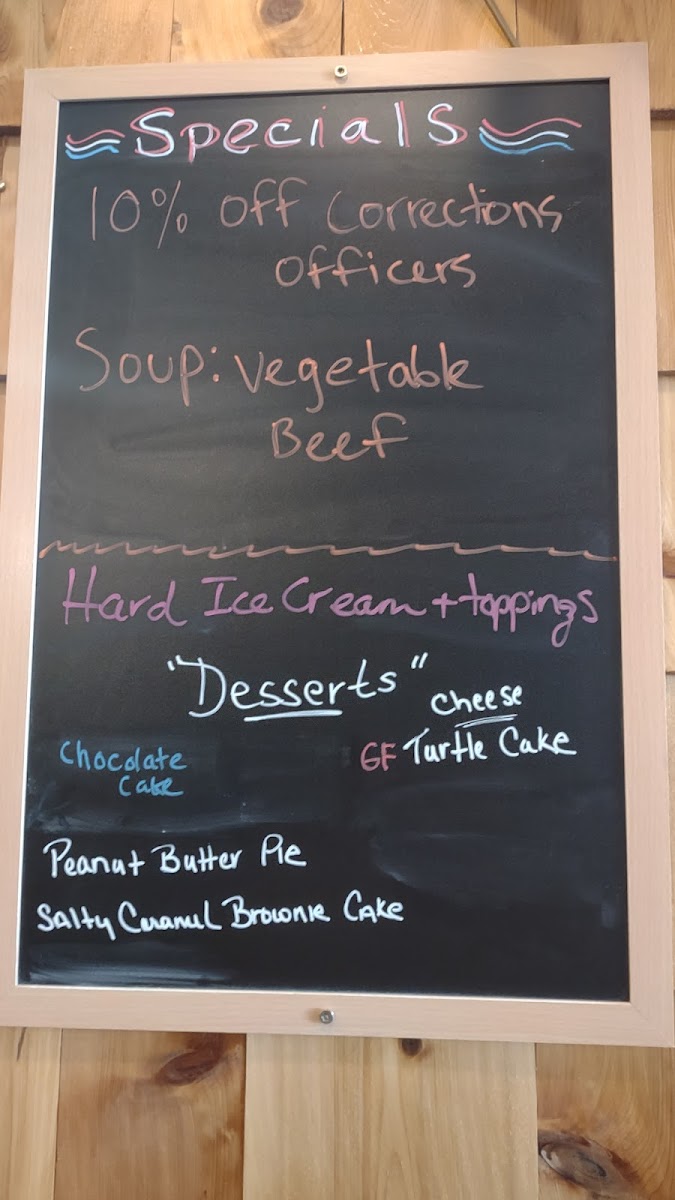 Specials
10% off Corrections
officers
Soup: Vegetable
Beef
Hard Ice Cream + toppings
"Desserts"
cheese
Chocolate
Cake
GF Turtle Cake
Peanut Butter Pie
Salty Caramel Brownie Cake